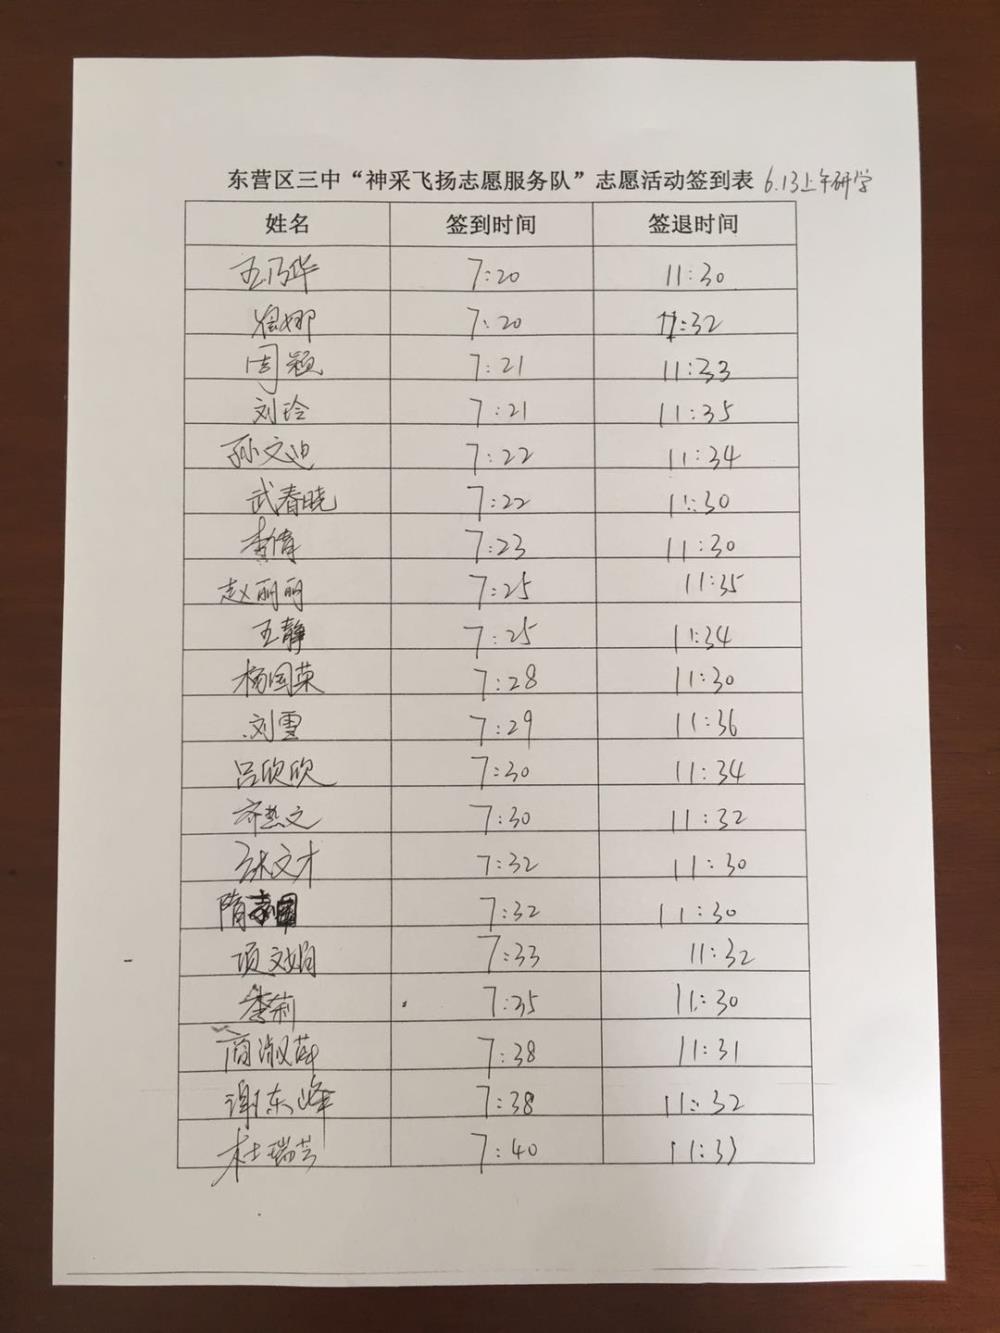 东营区三中“神采飞扬志愿服务队”志愿活动签到表 6.13上午研学
姓名 签到时间 签退时间
王乃华 7:20 11:30
徐娜 7:20 11:32
周颖 7:21 11:33
刘玲 7:21 11:35
孙文迪 7:22 11:34
武春晓 7:22 11:30
李倩 7:23 11:30
赵丽丽 7:25 11:35
王静 7:25 11:34
杨国英 7:28 11:30
刘雪 7:29 11:36
吕欣欣 7:30 11:34
7:30 11:32
张文才 7:32 11:30
隋 7:32 11:30
项文娟 7:33 11:32
李莉 7:35 11:30
商淑 7:38 11:31
谢东峰 7:38 11:32
杜瑞芸 7:40 11:33